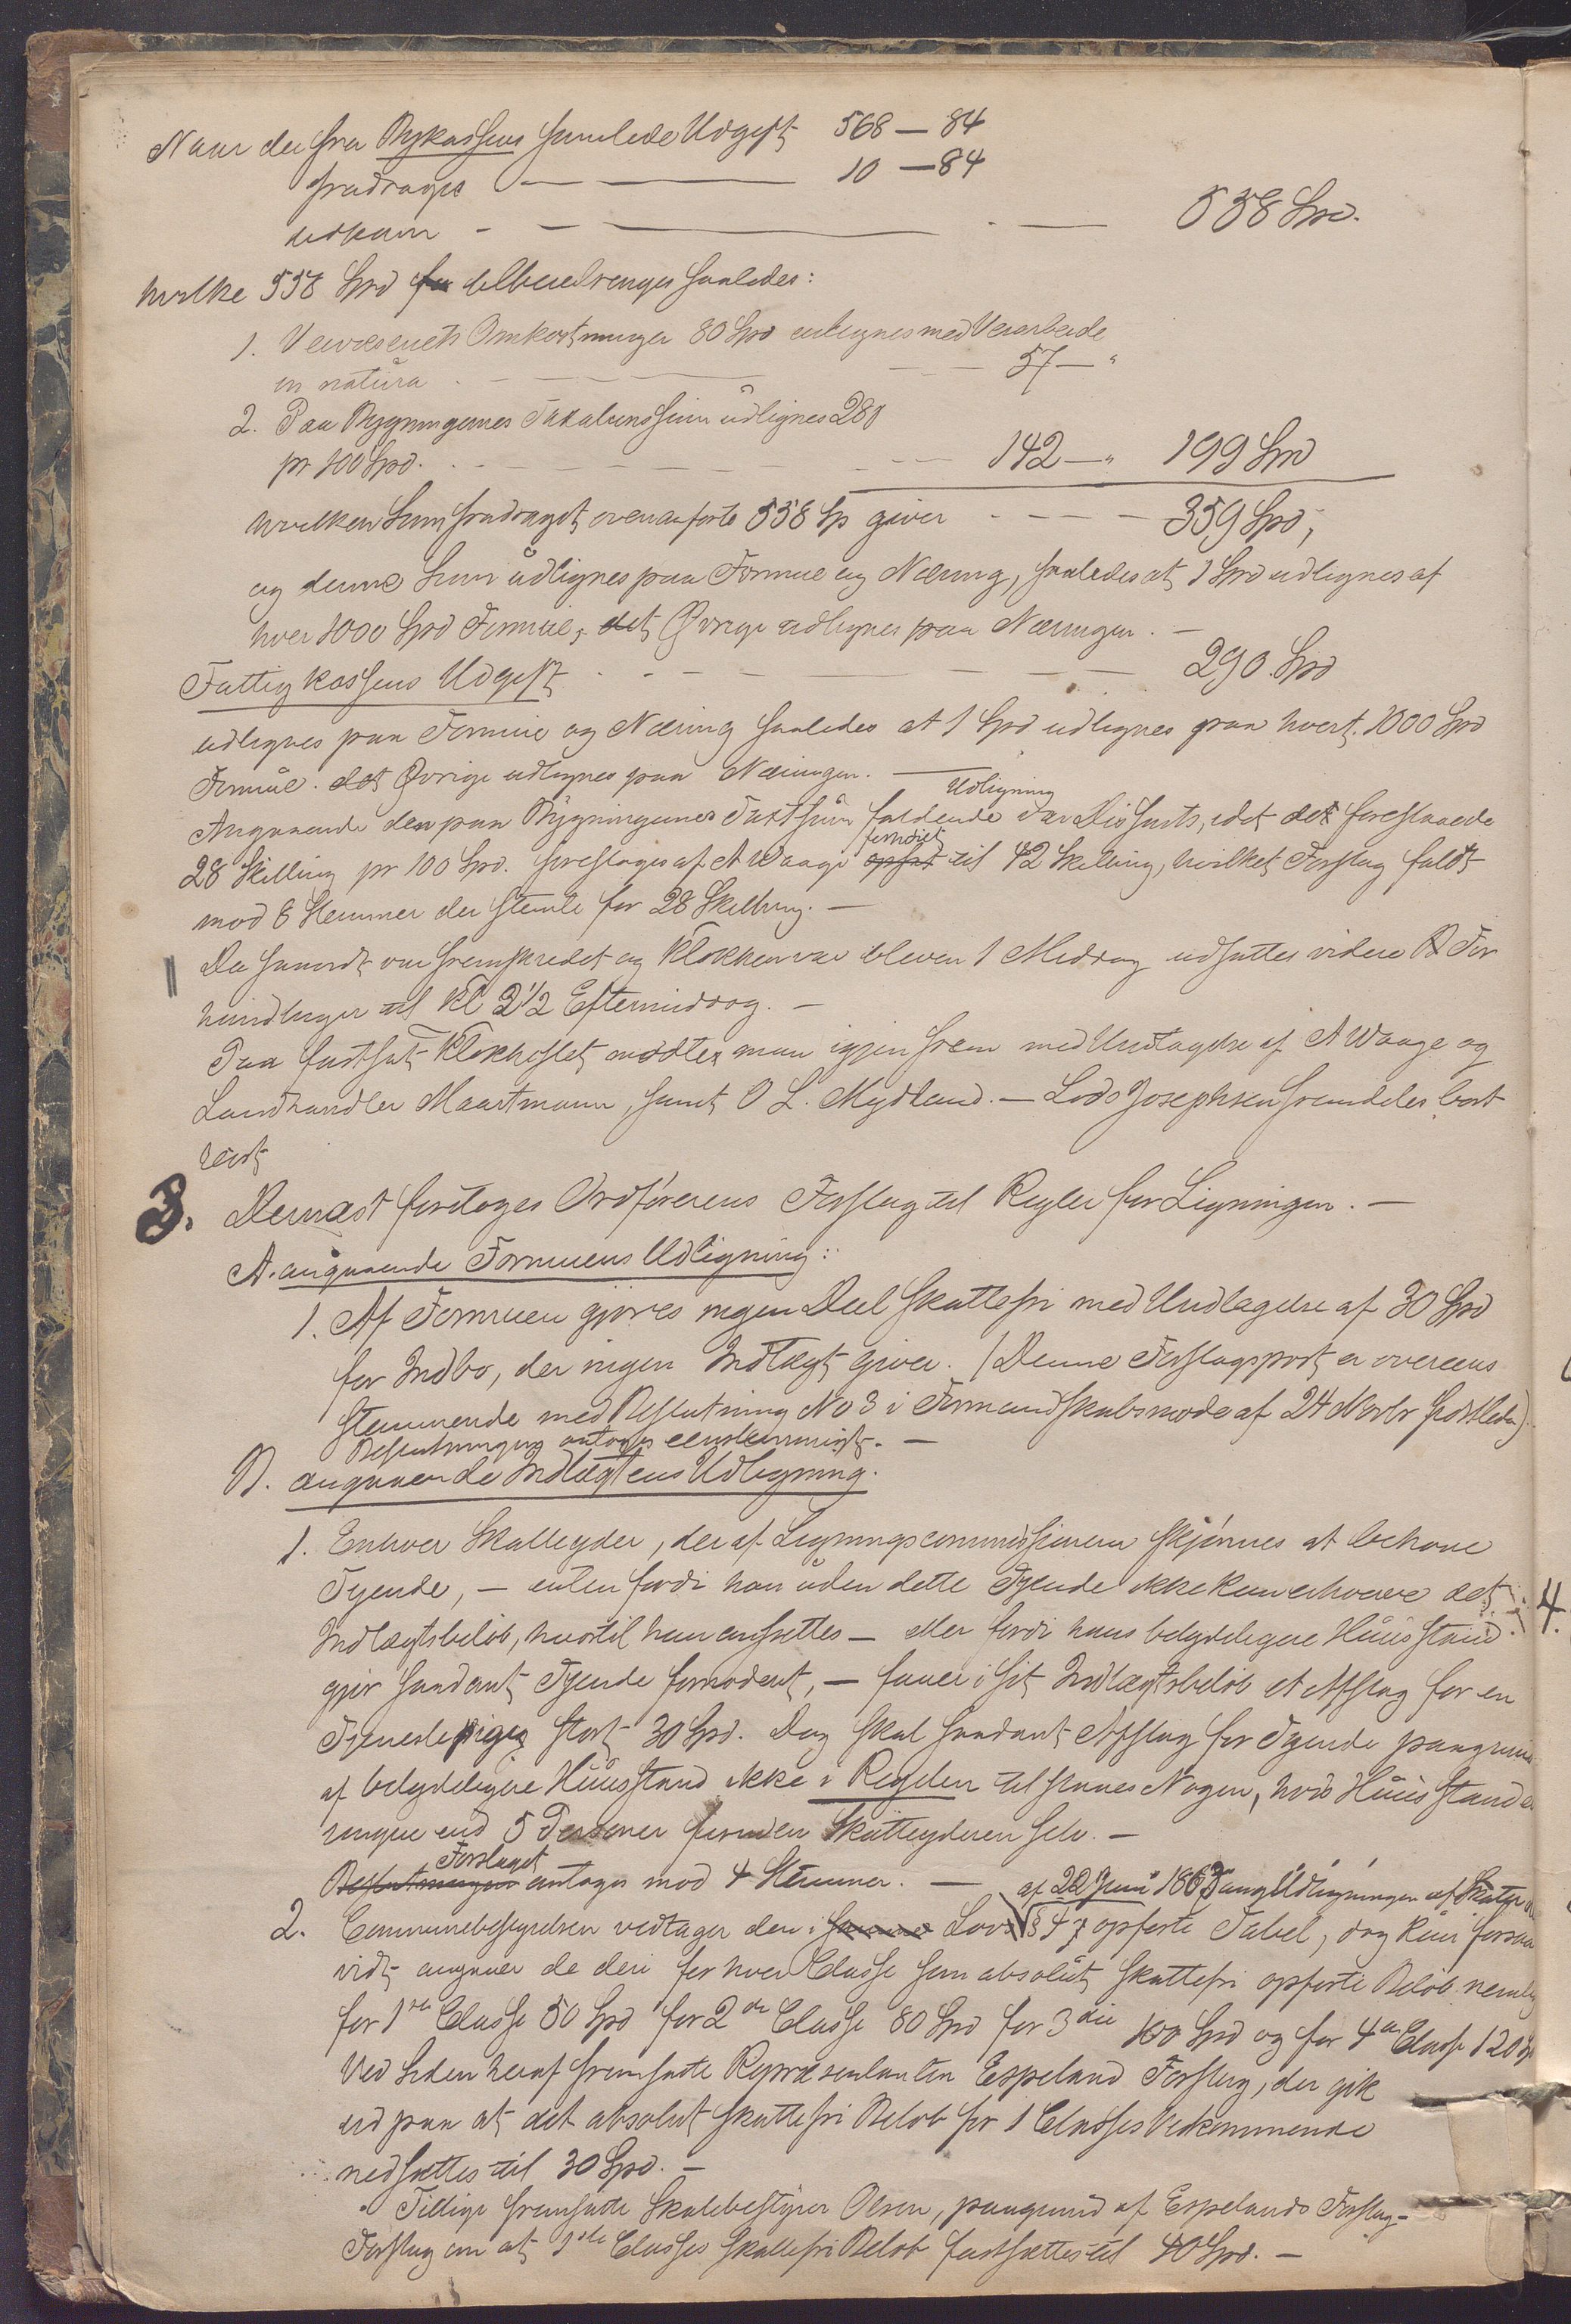 Naar der fra Bykassens samlede Udgift 568 — 84
fradrages — 10 — 84
udkom — 558 Spd.
hvilke 558 Spd tilveiebringes saaledes:
1. Veivæsenets Omkostninger 80 Spd udlignes med Veiarbeide
in natura — 57 — "
2. Paa Bygningernes Taxationssum udlignes 28 s
pr 100 Spd. — 142 — " 199 Spd
hvilken Sum fradraget ovenanførte 558 Sp giver — 359 Spd,
og denne Sum udlignes paa Formue og Næring, saaledes at 1 Spd udlignes af
hver 1000 Spd Formue, det Øvrige udlignes paa Næringen. —
Fattigkassens Udgift — 290 Spd
udlignes paa Formue og Næring saaledes at 1 Spd udlignes paa hvert 1000 Spd
Formue. det Øvrige udlignes paa Næringen. —
Angaaende den paa Bygningernes Taxtsum faldende Udligning var Dissents, idet det foreslaaede
28 Skilling pr 100 Spd. foresloges af A Waage forhøiet til 42 Skilling, hvilket Forslag faldt
mod 8 Stemmer der stemte for 28 Skilling. —
Da saavidt var fremskredet og Klokken var bleven 1 Middag udsattes videre For
handlinger til Kl 2 1/2 Eftermiddag. —
Paa fastsat Klokkeslet mødte man igjen frem med Undtagelse af A Waage og
Landhandler Maartmann, samt O L. Mydland. — Lods Josephsen fremdeles bort
reist
3. Dernæst foretoges Ordførerens Forslag til Regler for Ligningen. —
A. angaaende Formuens Udligning:
1. Af Formuen gjøres ingen Deel skattefri med Undtagelse af 30 Spd
for Indbo, der ingen Indtægt giver. (Denne Forslagspost er overeens
stemmende med Beslutning No 3 i Formandskabsmøde af 24 Novbr sidstleden).
Beslutningen antoges eenstemmigt. —
B. angaaende Indtægtens Udligning.
1. Enhver Skatteyder, der af Ligningscommissionen skjønnes at behøve
Tyende, — enten fordi han uden dette Tyende ikke kan erhverve det
Indtægtsbeløb, hvortil han ansættes — eller fordi hans betydeligere Huusstand
gjør saadant Tyende fornødent, — faaer i sit Indtægtsbeløb et Afslag for en
Tjenestepige stort 30 Spd. Dog skal saadant Afslag for Tyende paagrund
af betydeligere Huusstand ikke i Regelen tilstaaes Nogen, hvis Huusstand er
ringere end 5 Personer foruden Skatteyderen selv. —
Forslaget antoges mod 4 Stemmer. —
2. Communebestyrelsen vedtager den i Lov af 22 Juni 1863 ang Udligningen af Skatter § 47 opførte Tabel, dog kun forsaa
vidt angaaer de deri for hver Classe som absolut skattefri opførte Beløb nemlig
for 1ste Classe 50 Spd for 2den Classe 80 Spd for 3die 100 Spd og for 4de Classe 120 Sp
Ved Siden heraf fremsatte Repræsentanten Espeland Forslag, der gik
ud paa at det absolut skattefri Beløb for 1 Classes Vedkommende
nedsættes til 30 Spd. —
Tillige fremsatte Skolebestyrer Olsen, paagrund af Espelands Forslag —
Forslag om at 1ste Classes skattefri Beløb fastsættes til 40 Spd. —
4.